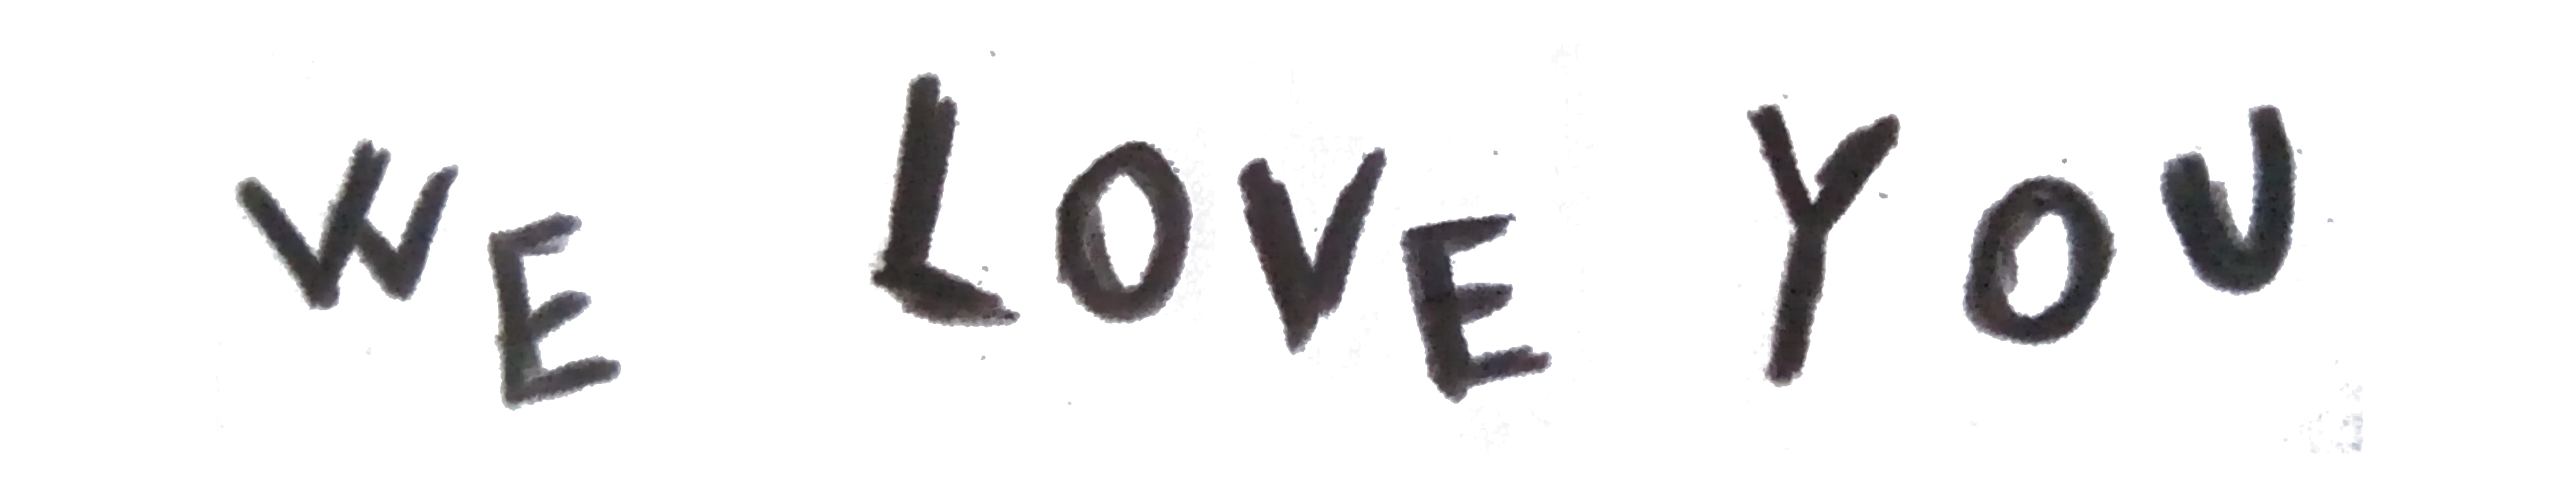 WE LOVE YOU